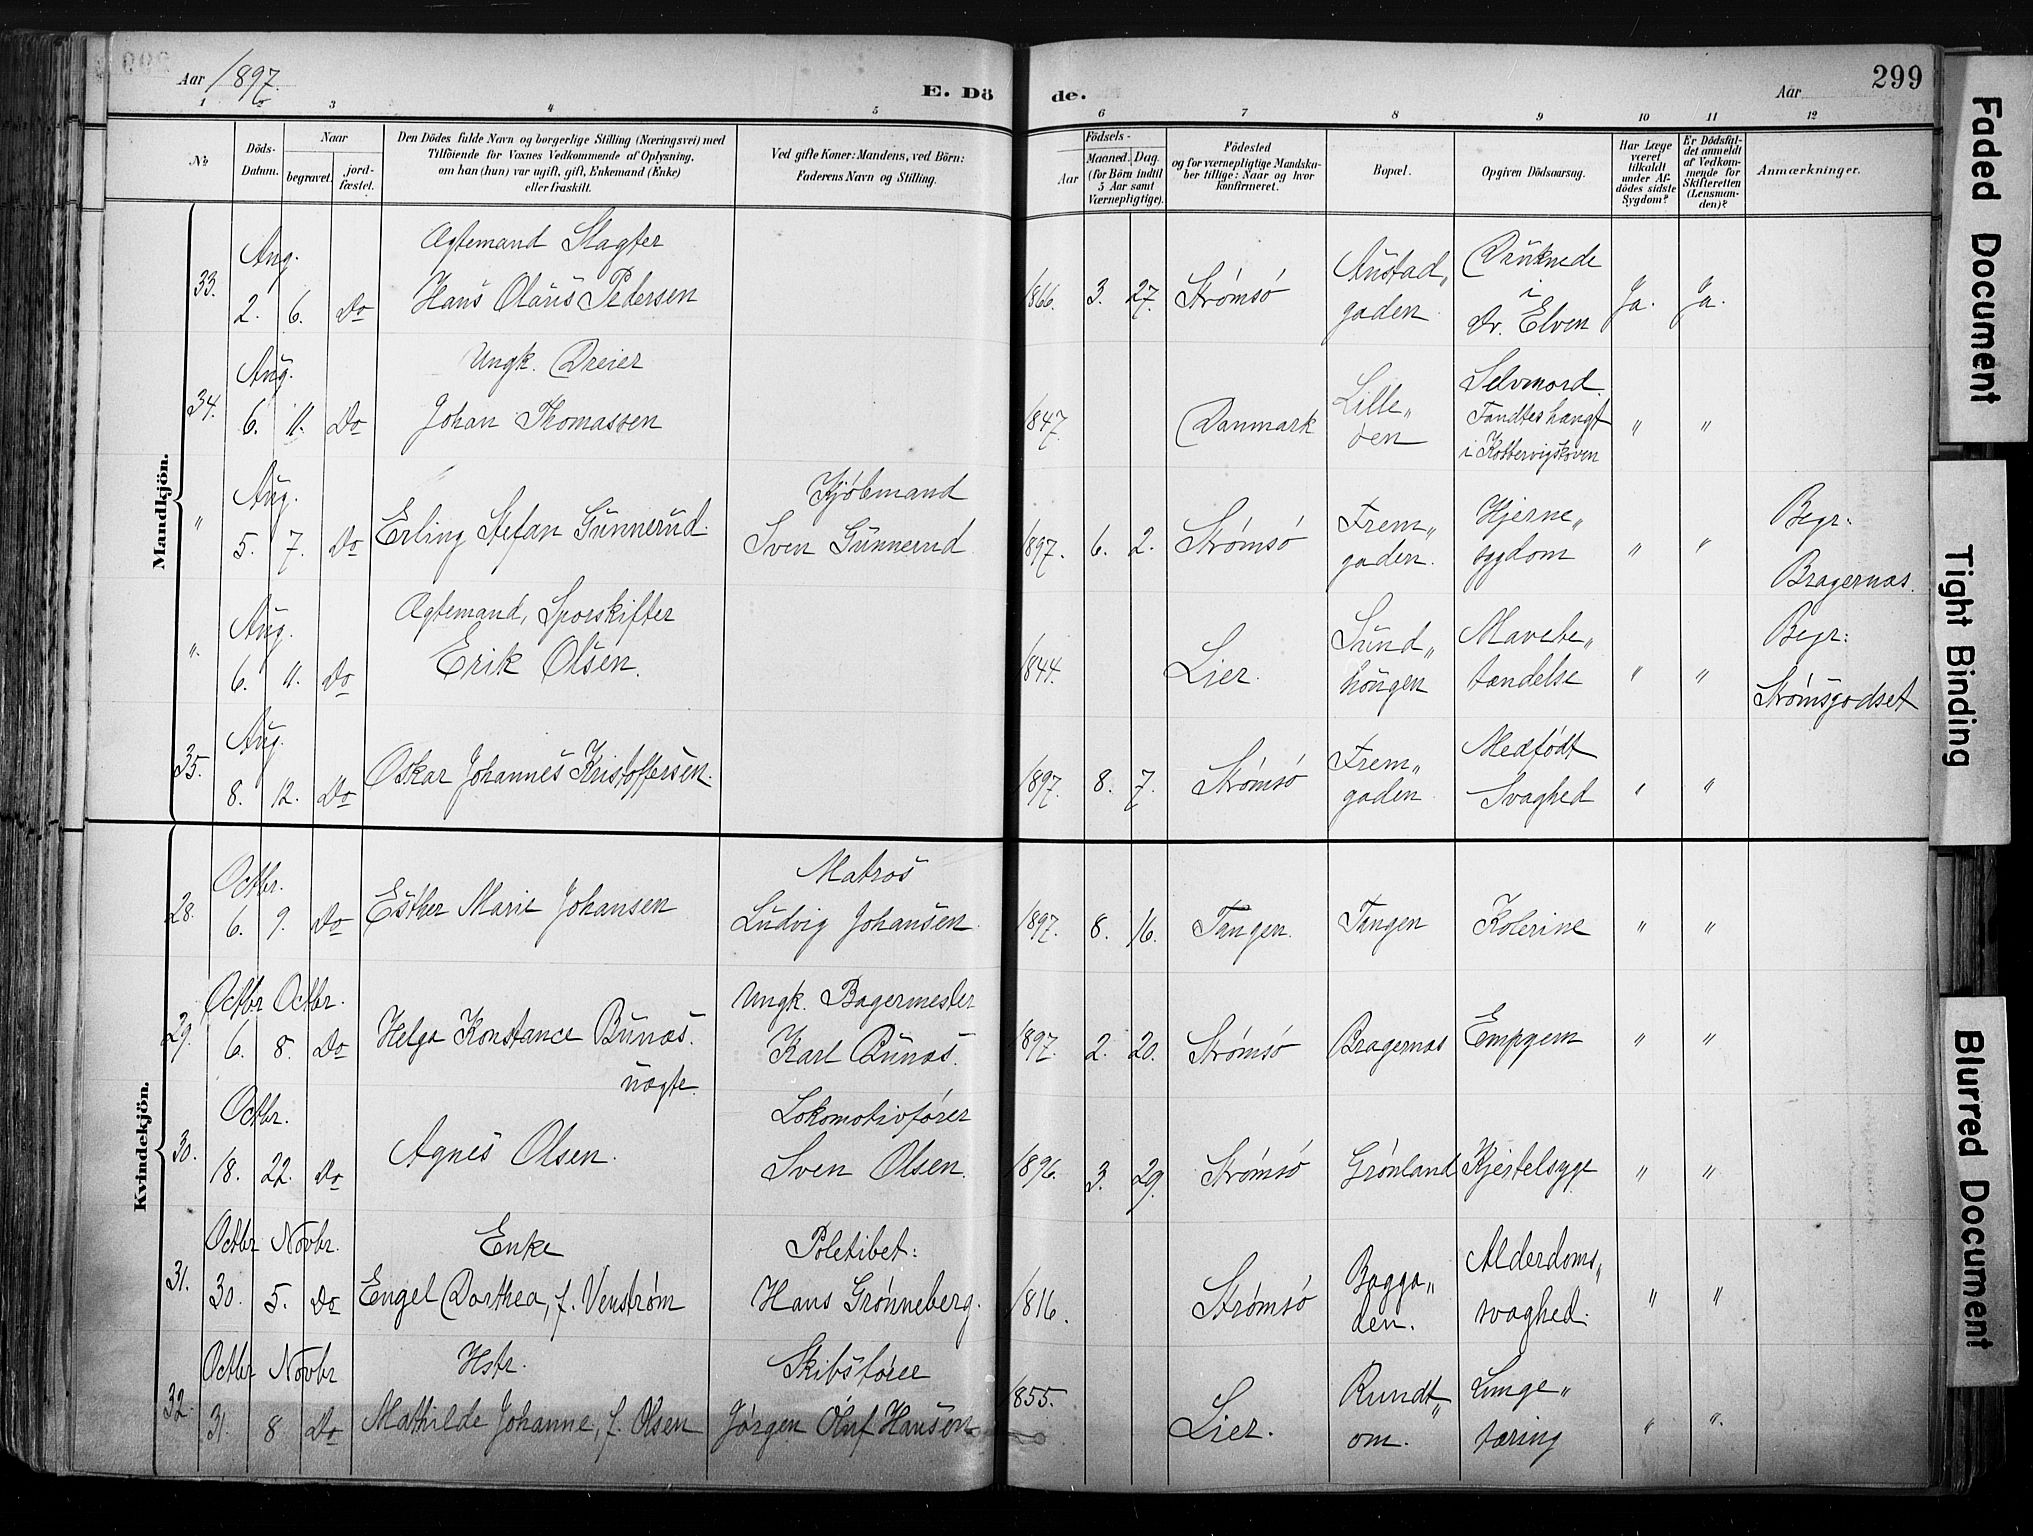 Aar 1897. E. Dö de. Aar 299
1 2 3 4 5 6 7 8 9 10 11 12
No
Döds-Datum.
Naar
begravet. jordfæstet.
Den Dödes fulde Navn og borgerlige Stilling (Næringsvei) med
Tilföiende for Voxnes Vedkommende af Oplysning,
om han (hun) var ugift, gift, Enkemand (Enke)
eller fraskilt.
Ved gifte Koner: Mandens, ved Börn:
Faderens Navn og Stilling.
Födsels-
Aar Maaned. Dag.
(for Börn indtil
5 Aar samt
Værnepligtige).
Födested
og for værnepligtige Mandskaber tillige: Naar og hvor
konfirmeret.
Bopæl.
Opgiven Dödsaarsag.
Har Læge
været
tilkaldt
under Afdödes sidste
Sygdom?
Er Dödsfaldet anmeldt
af Vedkommende for
Skifteretten
(Lensmanden)?
Anmærkninger.
Mandkjön.
Aug. Ægtemand Slagter Austad„ Druknede
33. 2. 6. Do Hans Olaus Pedersen 1866. 3. 27. Strømsö gaden i Dr. Elven Ja. Ja.
Aug. Ungk. Dreier Lille„ Selvmord.
34. 6. 11. Do Johan Thomassen 1847. Danmark öen Fandtes hængt „ „
i Kobbervigskoven
Aug. Kjøbmand Frem„ Hjerne„ Begr:
„ 5. 7. Do Erling Stefan Gunnerud. Sven Gunnerud 1897. 6. 2. Strømsö gaden. sygdom „ „ Bragernæs.
Aug. Ægtemand, Sporskifter Sund„ Mavebe„ Begr:
„ 6. 11. Do Erik Olsen. 1844. Lier. haugen tændelse „ „ Strømsgodset
Aug. Frem„ Medfødt
35. 8. 12. Do Oskar Johannes Kristoffersen. 1897. 8. 7. Strømsö gaden Svaghed „ „
Kvindekjön.
Octbr. Matros
28. 6. 9. Do Esther Marie Johansen Ludvig Johansen. 1897. 8. 16. Tangen. Tangen Kolerine „ „
Octbr Octbr. Ungk. Bagermester
29. 6. 8. Do Helga Konstance Bunæs. Karl Bunæs. 1897. 2. 20. Strømsö Bragernæs Empyem „ „
uægte.
Octbr. Lokomotivfører
30. 18. 22. Do Agnes Olsen. Sven Olsen. 1896. 3. 29. Strømsö Grønland Kjertelsyge „ „
Octbr Novbr. Enke Poletibet: Bagga„ Alderdoms„
31. 30. 5. Do Engel Dorthea, f. Venstrøm Hans Grønneberg. 1816. Strømsö den. svaghed. „ „
Octbr Novbr Hstr. Skibsfører Rundt„ Lunge„
32. 31. 8 Do Mathilde Johanne, f. Olsen Jørgen Oluf Hansen 1855. Lier. om. tæring „ „
Faded Document
Tight Binding
Blurred Document